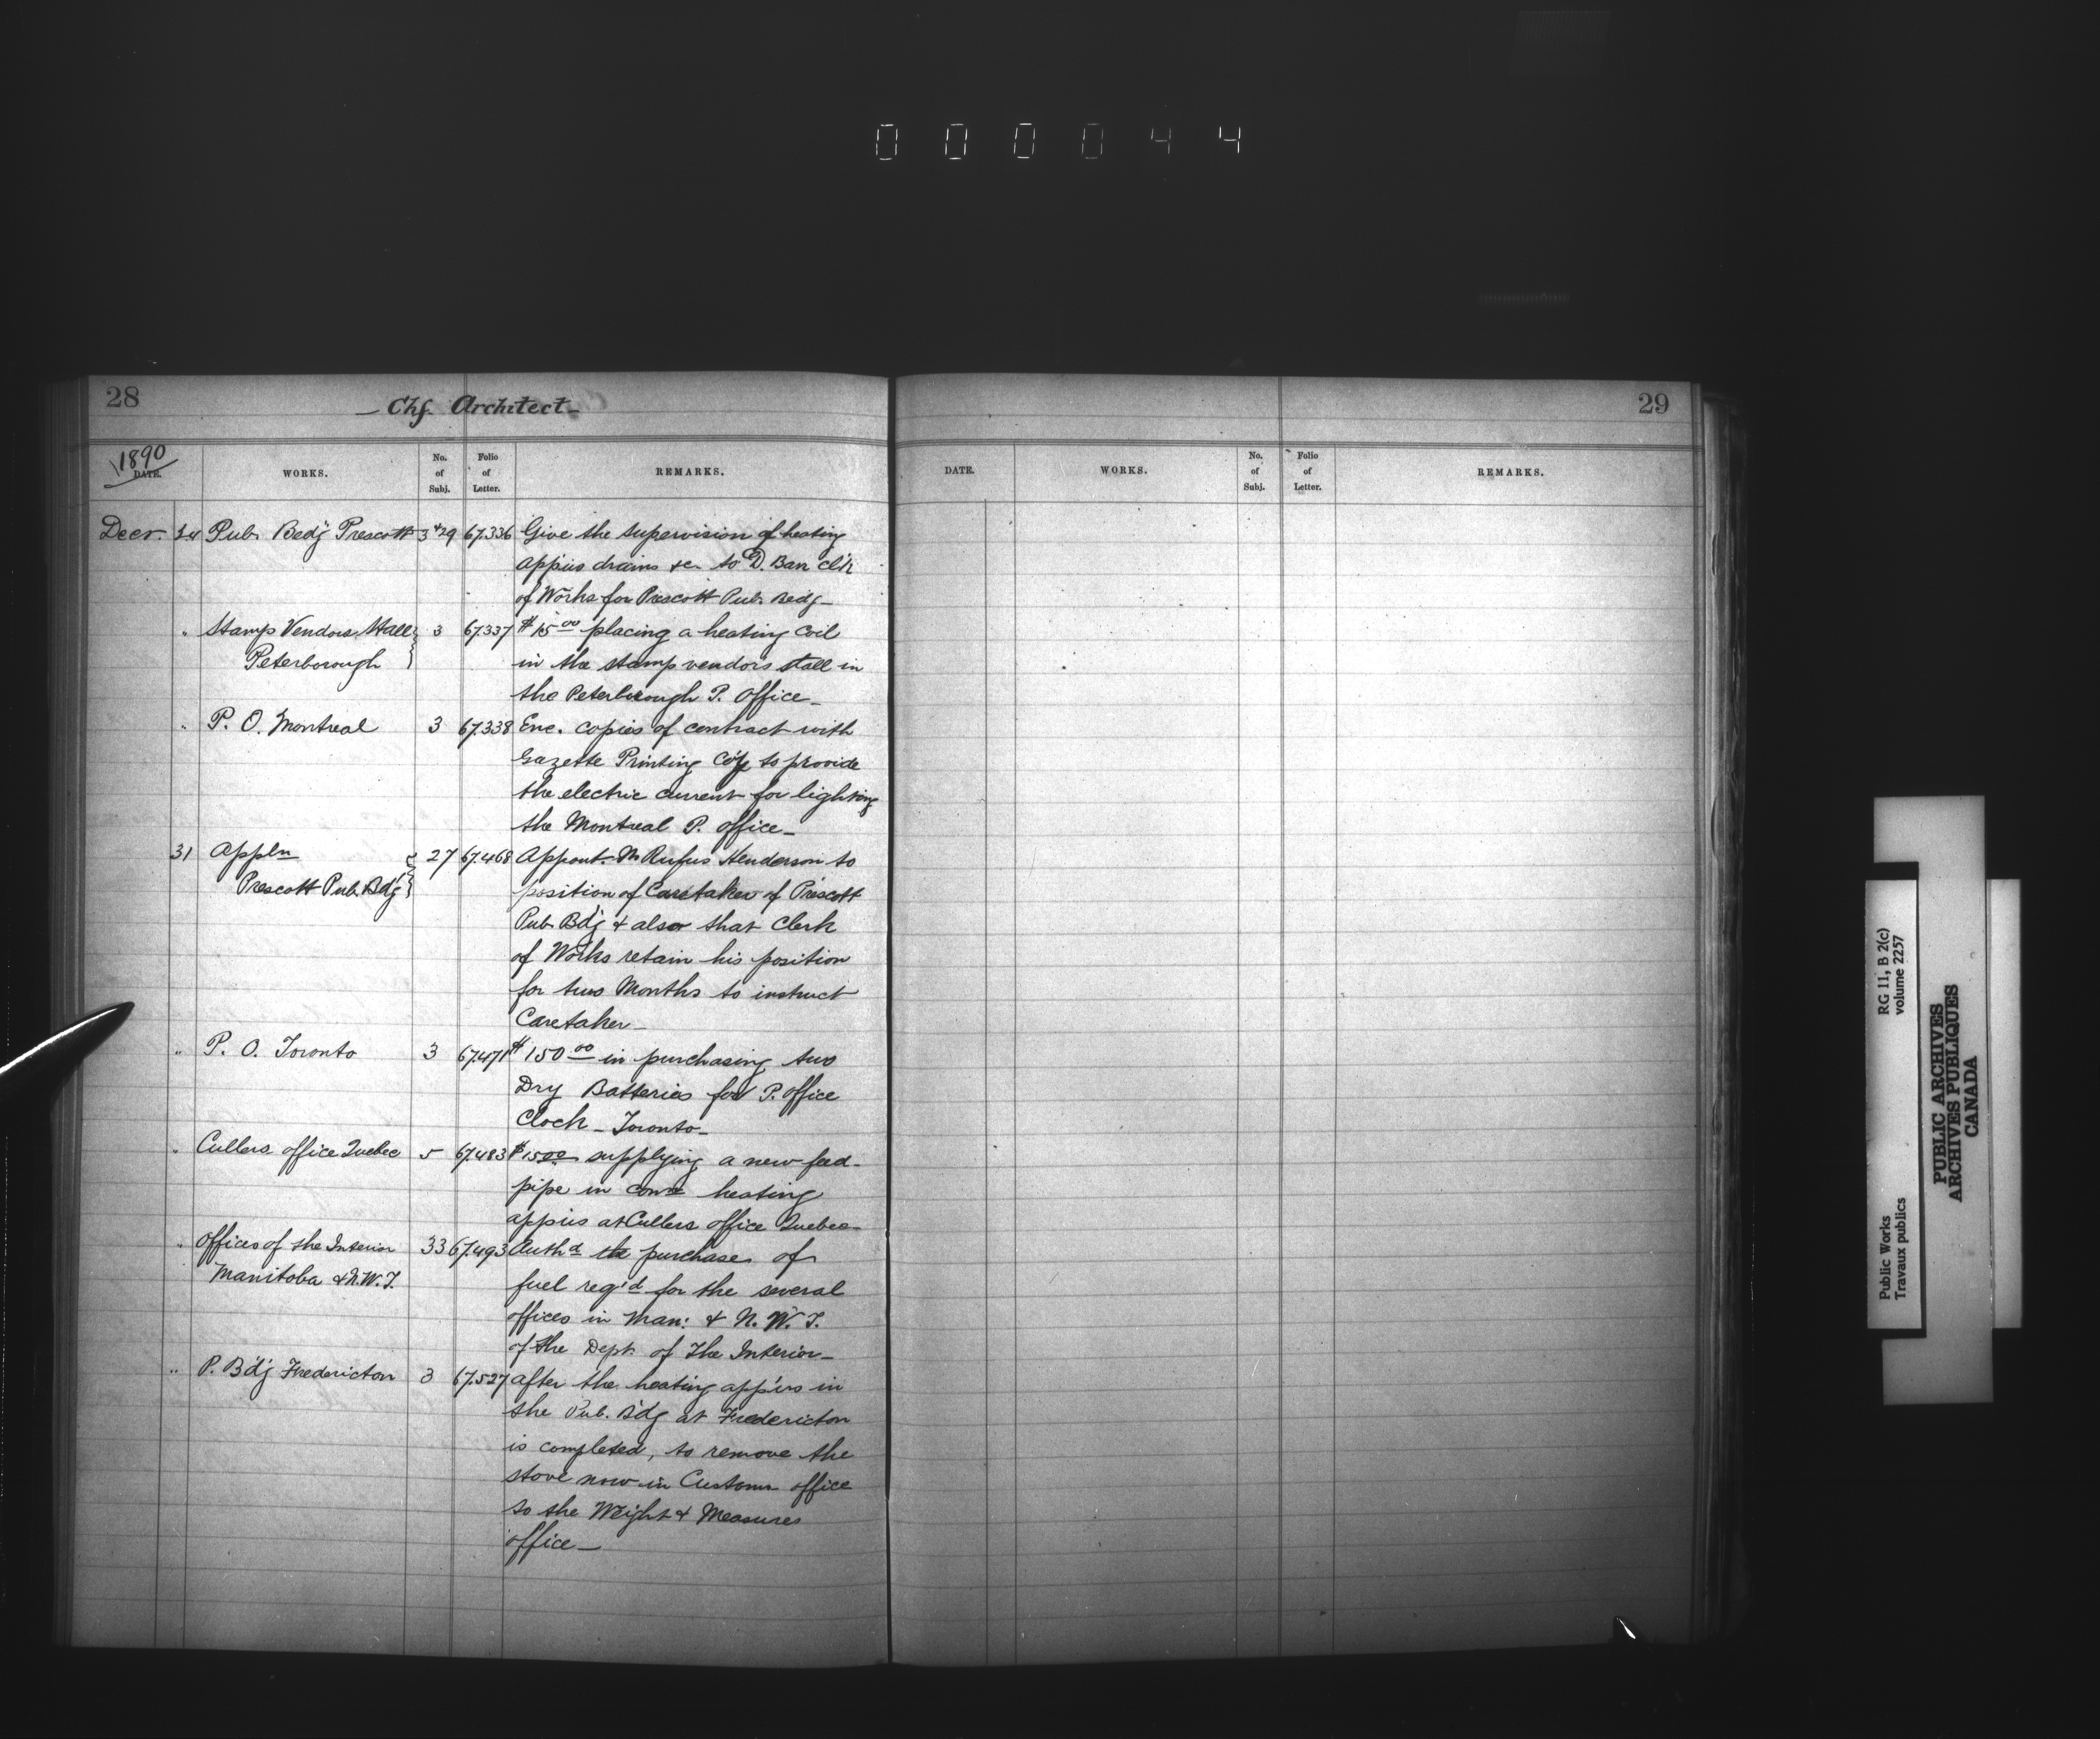 000044
28
— Chf. Architect —
1890
DATE.
WORKS.
No. of Subj.
Folio of Letter.
REMARKS.
Decr. 24 Pub. Bedg Prescott 3 & 29 67.336 Give the supervision of heating
app'us drains &c to D. Ban cl'k
of Works for Prescott Pub. Bedg —
" Stamp Vendors Stall 3 67.337 $15.00 placing a heating coil
Peterborough in the stamp vendors stall in
the Peterborough P. Office —
" P. O. Montreal 3 67.338 Enc. copies of contract with
Gazette Printing Co'y to provide
the electric current for lighting
the Montreal P. Office —
31 Appln 27 67.468 Appont. Mr Rufus Henderson to
Prescott Pub. Bd'g position of Caretaker of Prescott
Pub Bd'g & also that Clerk
of Works retain his position
for two Months to instruct
Caretaker —
" P. O. Toronto 3 67.471 $150.00 in purchasing two
Dry Batteries for P. Office
Clock — Toronto —
" Cullers office Quebec 5 67.483 $15.00 supplying a new feed
pipe in heating
app'us at Cullers office Quebec —
" Offices of the Interior 33 67.493 Auth'd the purchase of
Manitoba & N.W.T. fuel req'd for the several
offices in Man: & N. W. T.
of the Dept. of The Interior —
" P. Bd'g Fredericton 3 67.527 after the heating app'us in
the Pub. B'dg at Fredericton
is completed, to remove the
stove now in Customs office
to the Weight & Measures
office —
29
DATE.
WORKS.
No. of Subj.
Folio of Letter.
REMARKS.
Public Works RG 11, B 2(c)
Travaux publics volume 2257
PUBLIC ARCHIVES
ARCHIVES PUBLIQUES
CANADA